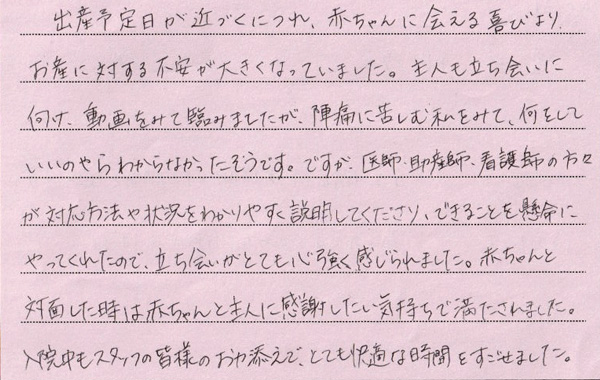 出産予定日が近づくにつれ、赤ちゃんに会える喜びより
お産に対する不安が大きくなっていました。主人も立ち会いに
向け、動画をみて臨みましたが、陣痛に苦しむ私をみて、何をして
いいのやらわからなかったそうです。ですが、医師・助産師・看護師の方々
が対応方法や状況をわかりやすく説明してくださり、できることを懸命に
やってくれたので、立ち会いがとても心強く感じられました。赤ちゃんと
対面した時は赤ちゃんと主人に感謝したい気持ちで満たされました。
入院中もスタッフの皆様のお力添えで、とても快適な時間をすごせました。